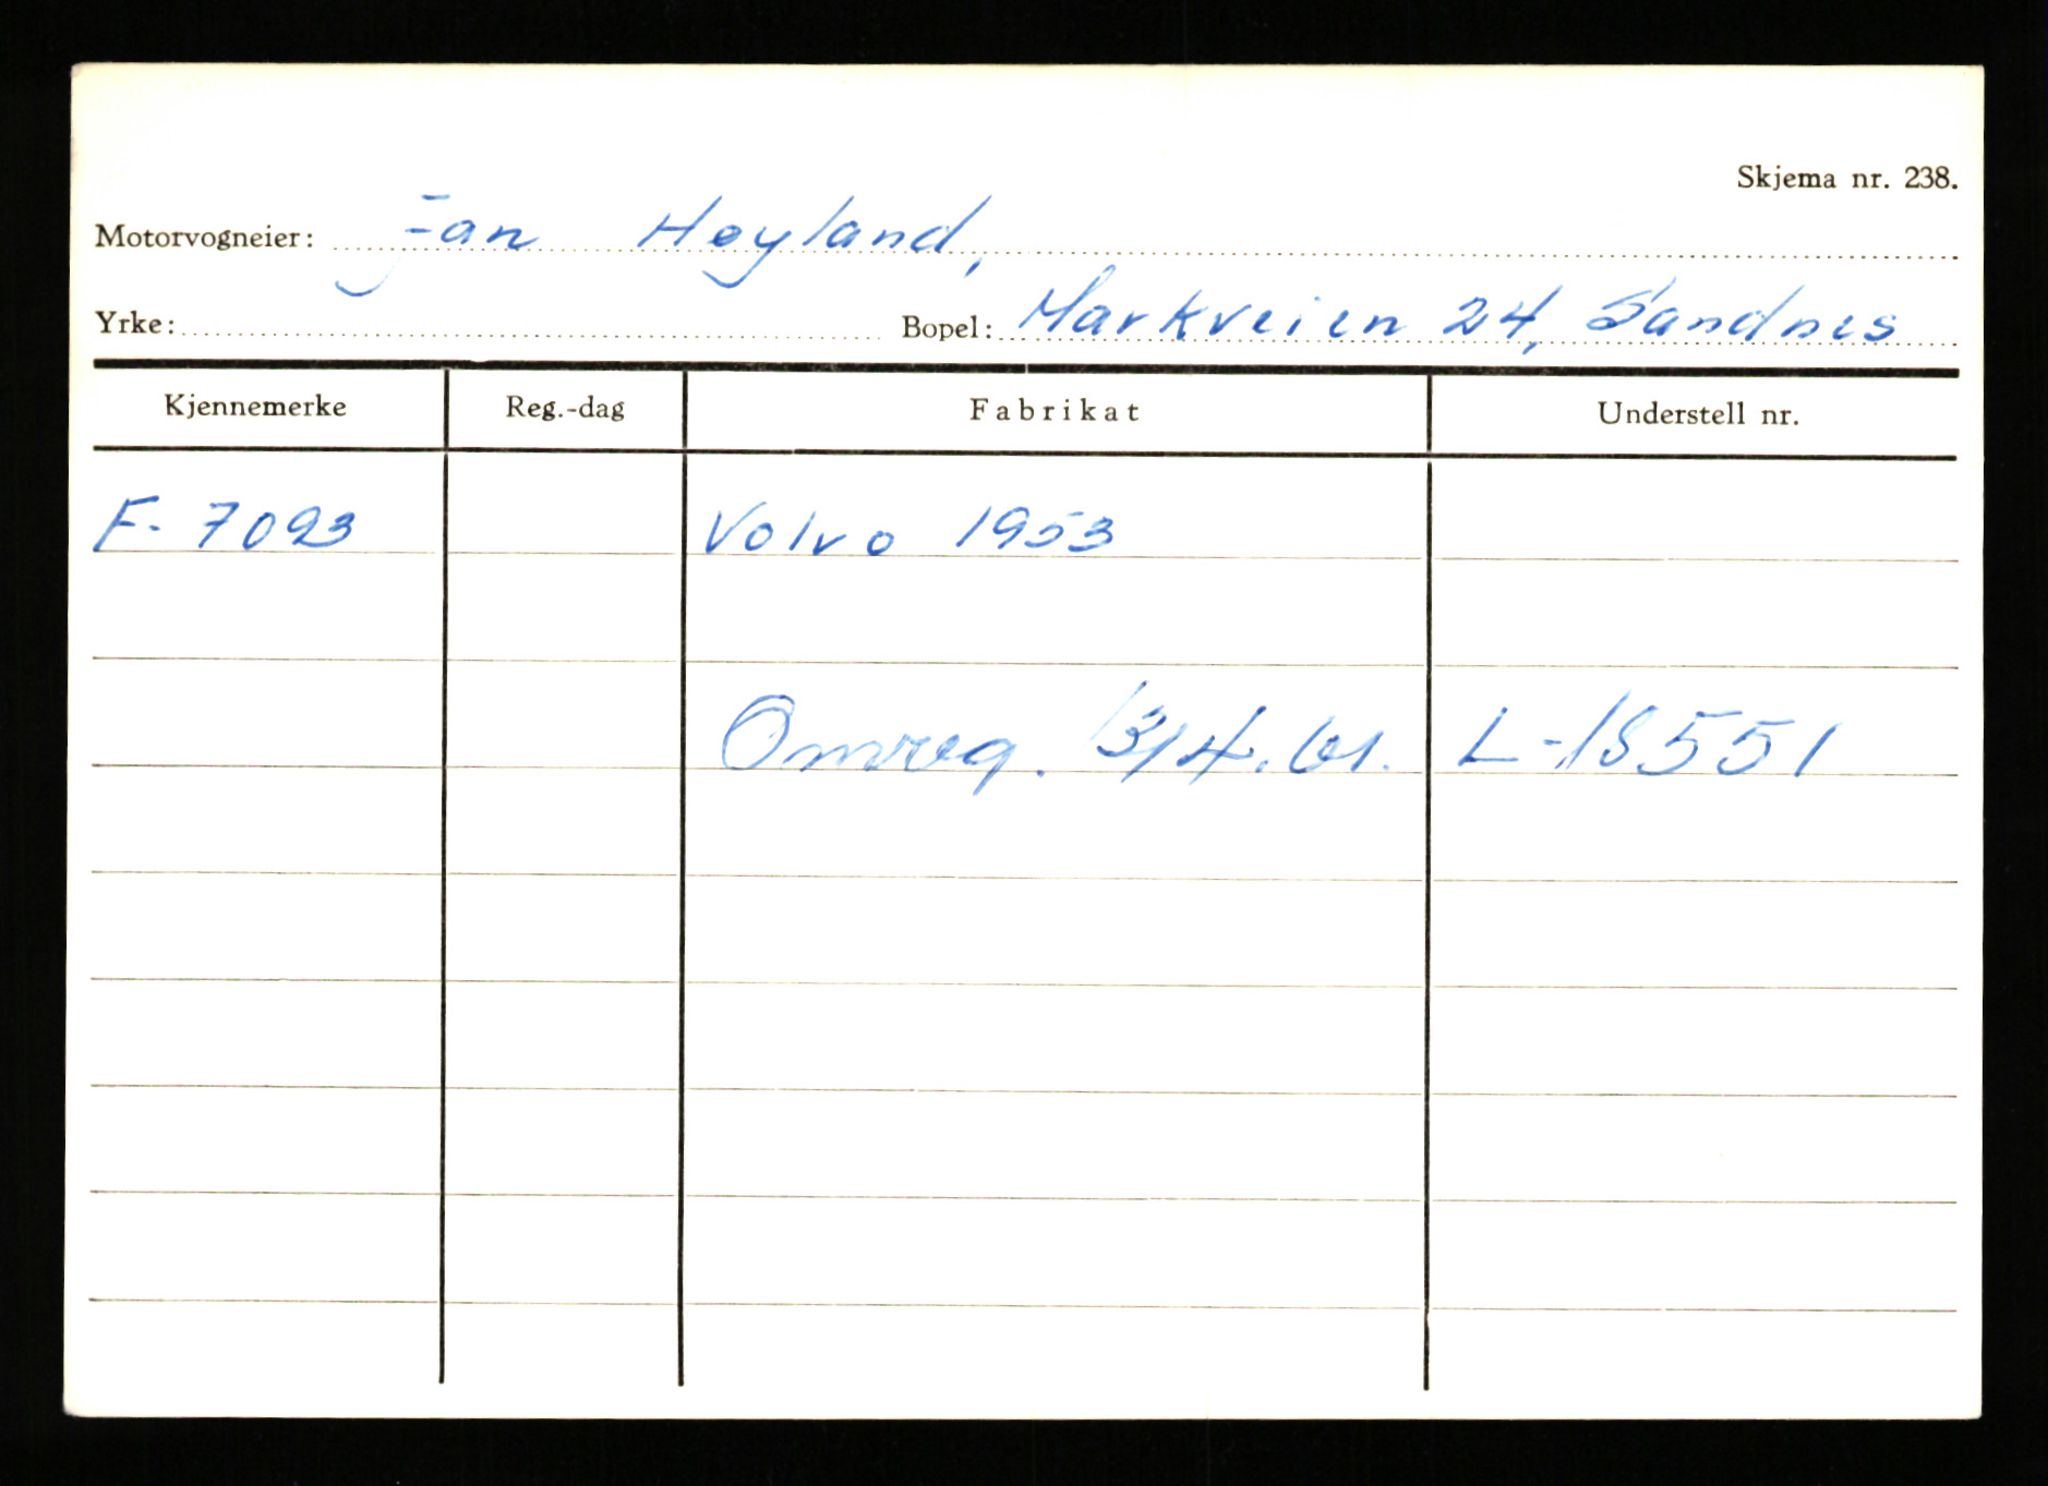 Skjema nr. 238.
Motorvogneier: Jan Høyland,
Yrke: Bopel: Markveien 24, Sandnes
Kjennemerke Reg.-dag Fabrikat Understell nr.
F- 7093 Volvo 1953
Omreg. 13/4. 61. L-18551